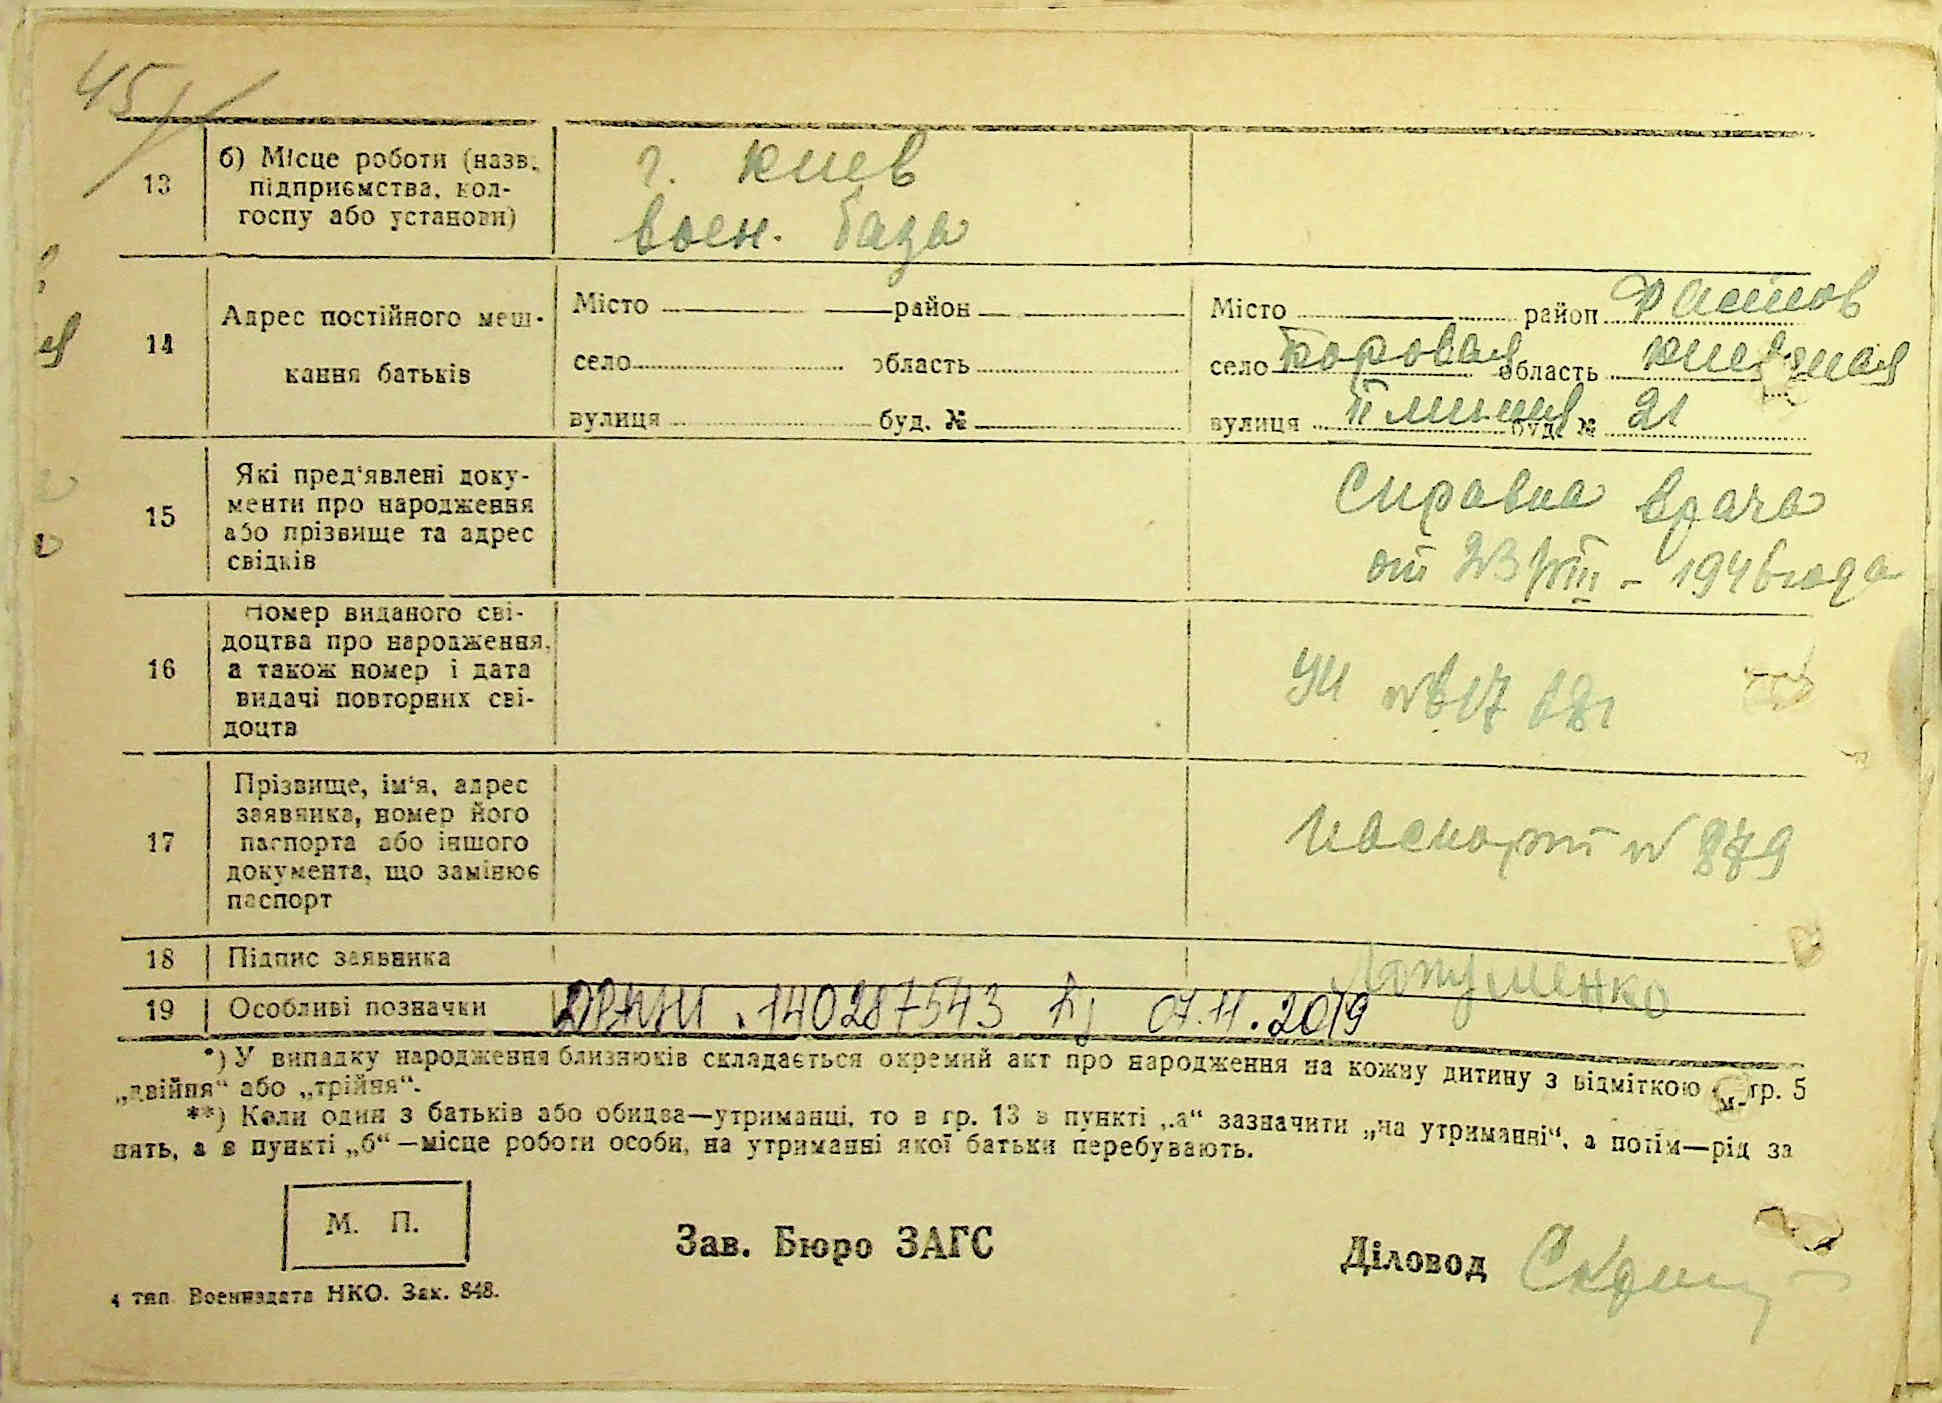 45
13
б) Місце роботи (назв.
підприємства, кол-
госпу або установи)
г. Киев
воен. база
14
Адрес постійного меш-
кання батьків
Місто район
село область
вулиця буд. №
Місто район Фастов
село Боровая область Киевская
вулиця П линия буд. № 21
15
Які пред'явлені доку-
менти про народження
або прізвище та адрес
свідків
Справка врача
от 23/VIII - 1946 года
16
Номер виданого сві-
доцтва про народження,
а також номер і дата
видачі повторних сві-
доцтв
17
Прізвище, ім'я, адрес
заявника, номер його
паспорта або іншого
документа, що замінює
паспорт
Паспорт № 879
18
Підпис заявника
19
Особливі позначки
140287543 07.11.2019
*) У випадку народження близнюків складається окремий акт про народження на кожну дитину з відміткою гр. 5
„двійня“ або „трійня“.
**) Коли один з батьків або обидва—утриманці, то в гр. 13 в пункті „а“ зазначити „на утриманні“, а потім—рід за
нять, а в пункті „б“—місце роботи особи, на утриманні якої батьки перебувають.
М. П.
Зав. Бюро ЗАГС
Діловод
4 тип. Воениздата НКО. Зак. 848.